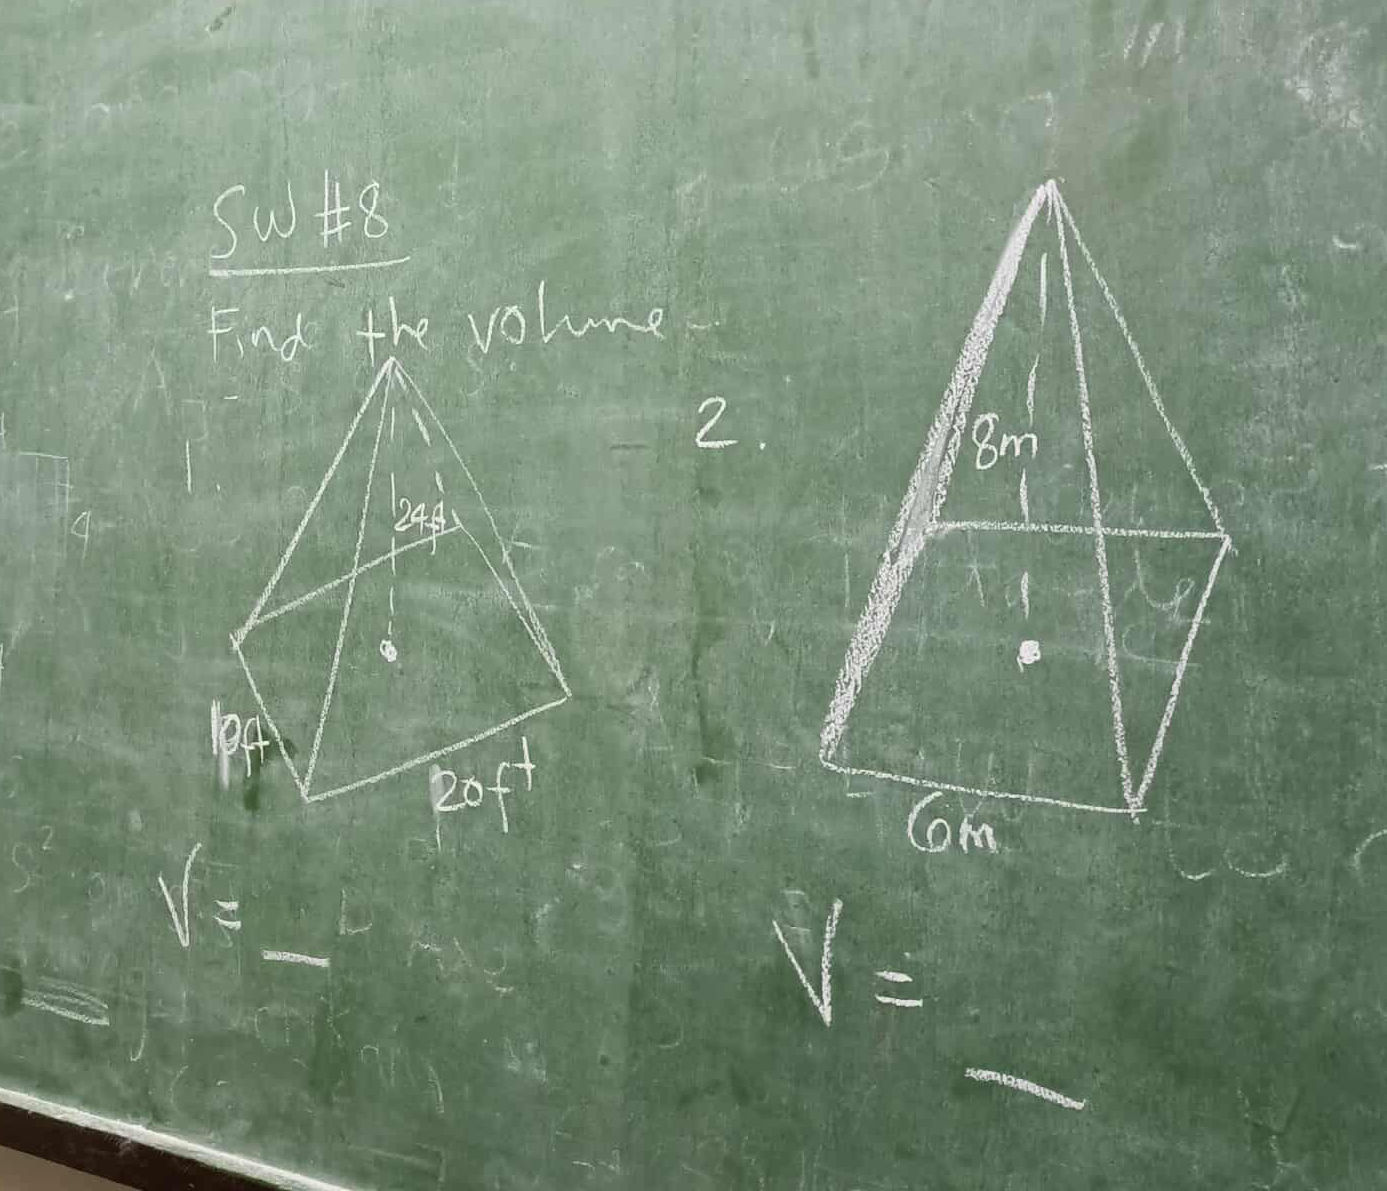 SW #8
Find the volume
1.
24ft
10ft
20ft
V = _
2.
8m
6m
V = _